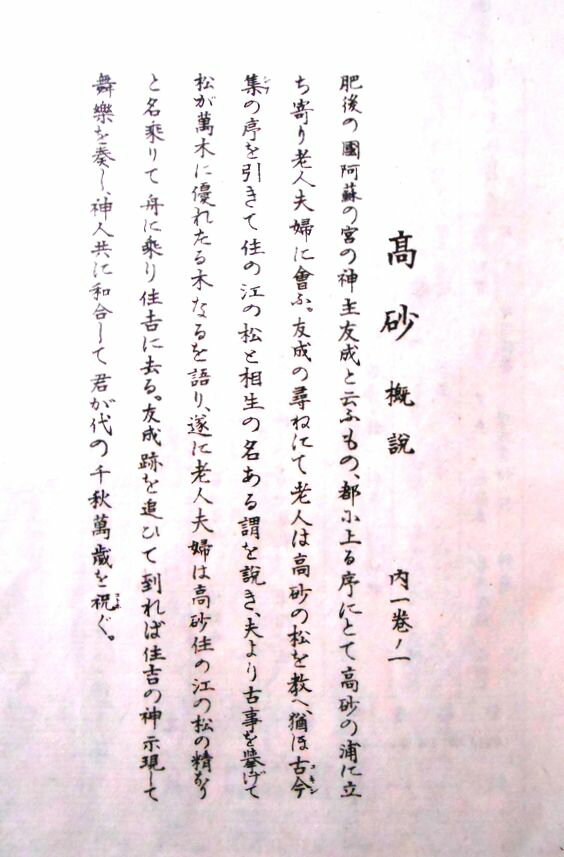 高砂 概説 内一巻ノ一
肥後の國阿蘇の宮の神主友成と云ふもの、都に上る序にとて高砂の浦に立
ち寄り老人夫婦に會ふ。友成の尋ねにて老人は高砂の松を教へ、猶ほ古今
集の序を引きて住の江の松と相生の名ある謂を説き、夫より古事を擧げて
松が萬木に優れたる木なるを語り、遂に老人夫婦は高砂住の江の松の精なり
と名乘りて舟に乘り住吉に去る。友成跡を追ひて到れば住吉の神示現して
舞樂を奏し、神人共に和合して君が代の千秋萬歳を祝ぐ。